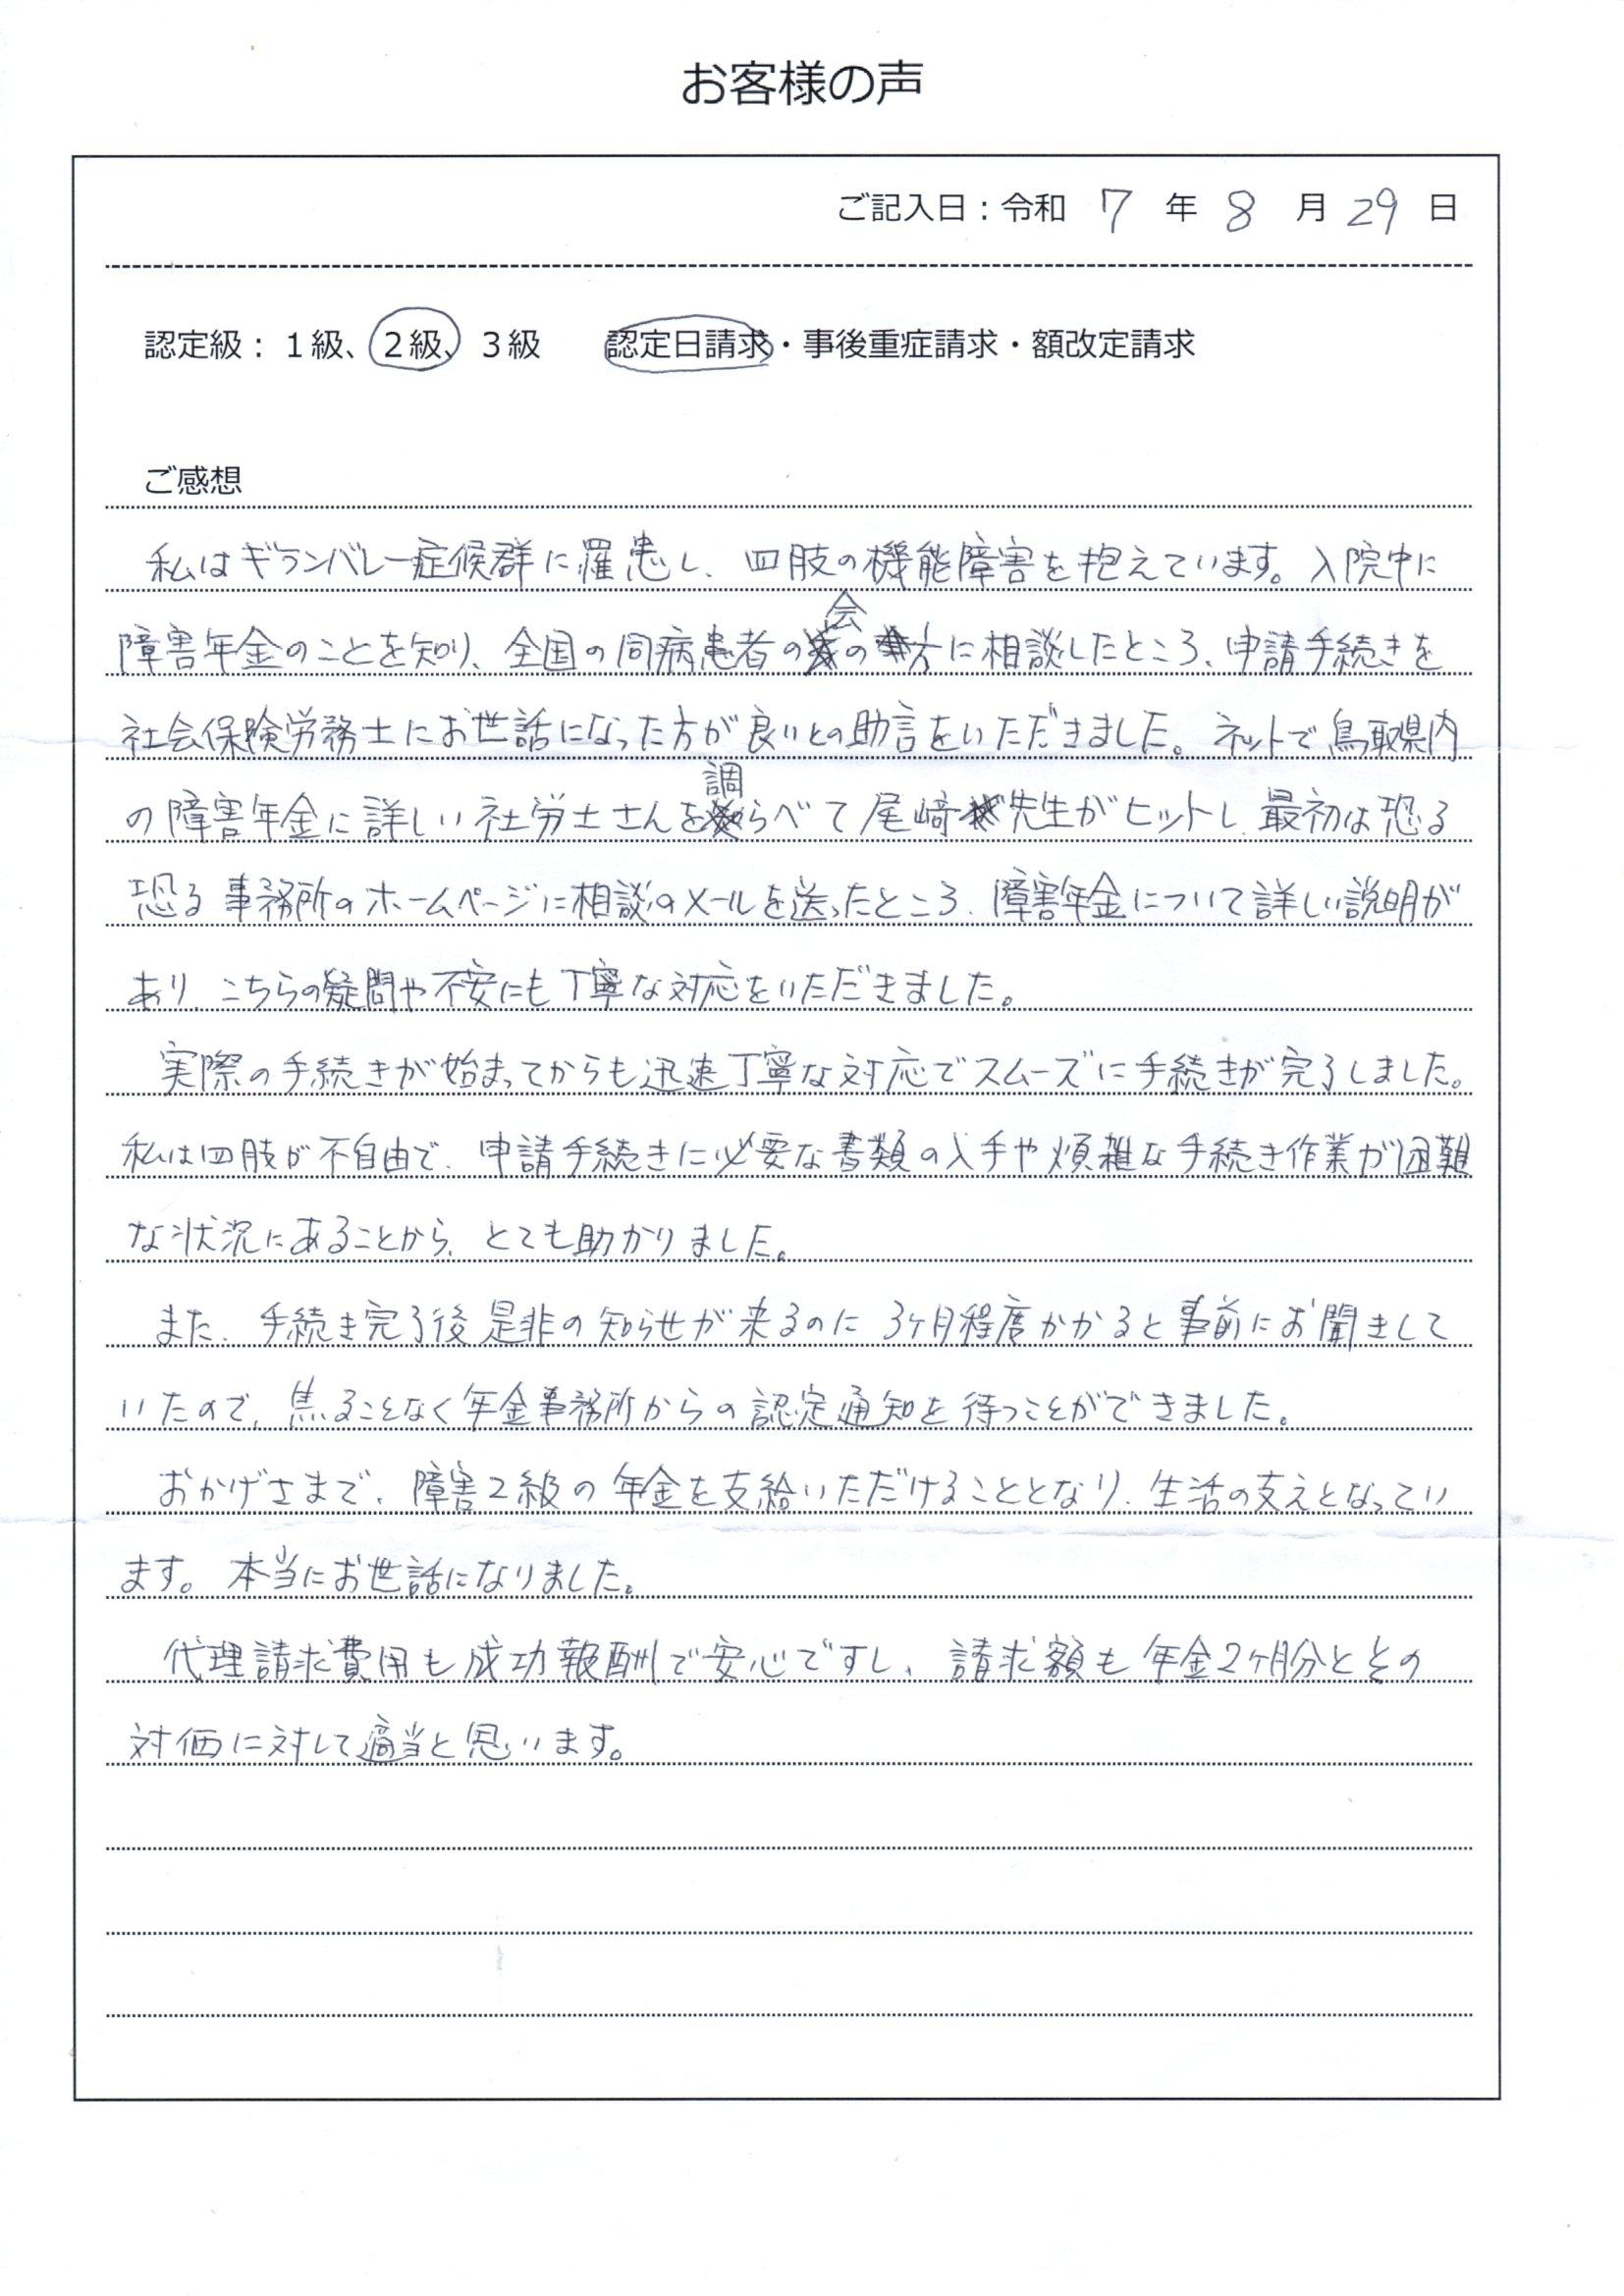 お客様の声
ご記入日：令和 7 年 8 月 29 日
認定級：１級、２級、３級　認定日請求・事後重症請求・額改定請求
ご感想
私はギランバレー症候群に羅患し、四肢の機能障害を抱えています。入院中に
障害年金のことを知り、全国の同病患者の会の方に相談したところ、申請手続きを
社会保険労務士にお世話になった方が良いとの助言をいただきました。ネットで鳥取県内
の障害年金に詳しい社労士さんを調らべて尾﨑先生がヒットし、最初は恐る
恐る事務所のホームページに相談のメールを送ったところ、障害年金について詳しい説明が
あり、こちらの疑問や不安にも丁寧な対応をいただきました。
実際の手続きが始まってからも迅速丁寧な対応でスムーズに手続きが完了しました。
私は四肢が不自由で、申請手続きに必要な書類の入手や煩雑な手続き作業が困難
な状況にあることから、とても助かりました。
また、手続き完了後是非の知らせが来るのに3ヶ月程度かかると事前にお聞きして
いたので、焦ることなく年金事務所からの認定通知を待つことができました。
おかげさまで、障害2級の年金を支給いただけることとなり、生活の支えとなってい
ます。本当にお世話になりました。
代理請求費用も成功報酬で安心ですし、請求額も年金2ヶ月分とその
対価に対して適当と思います。